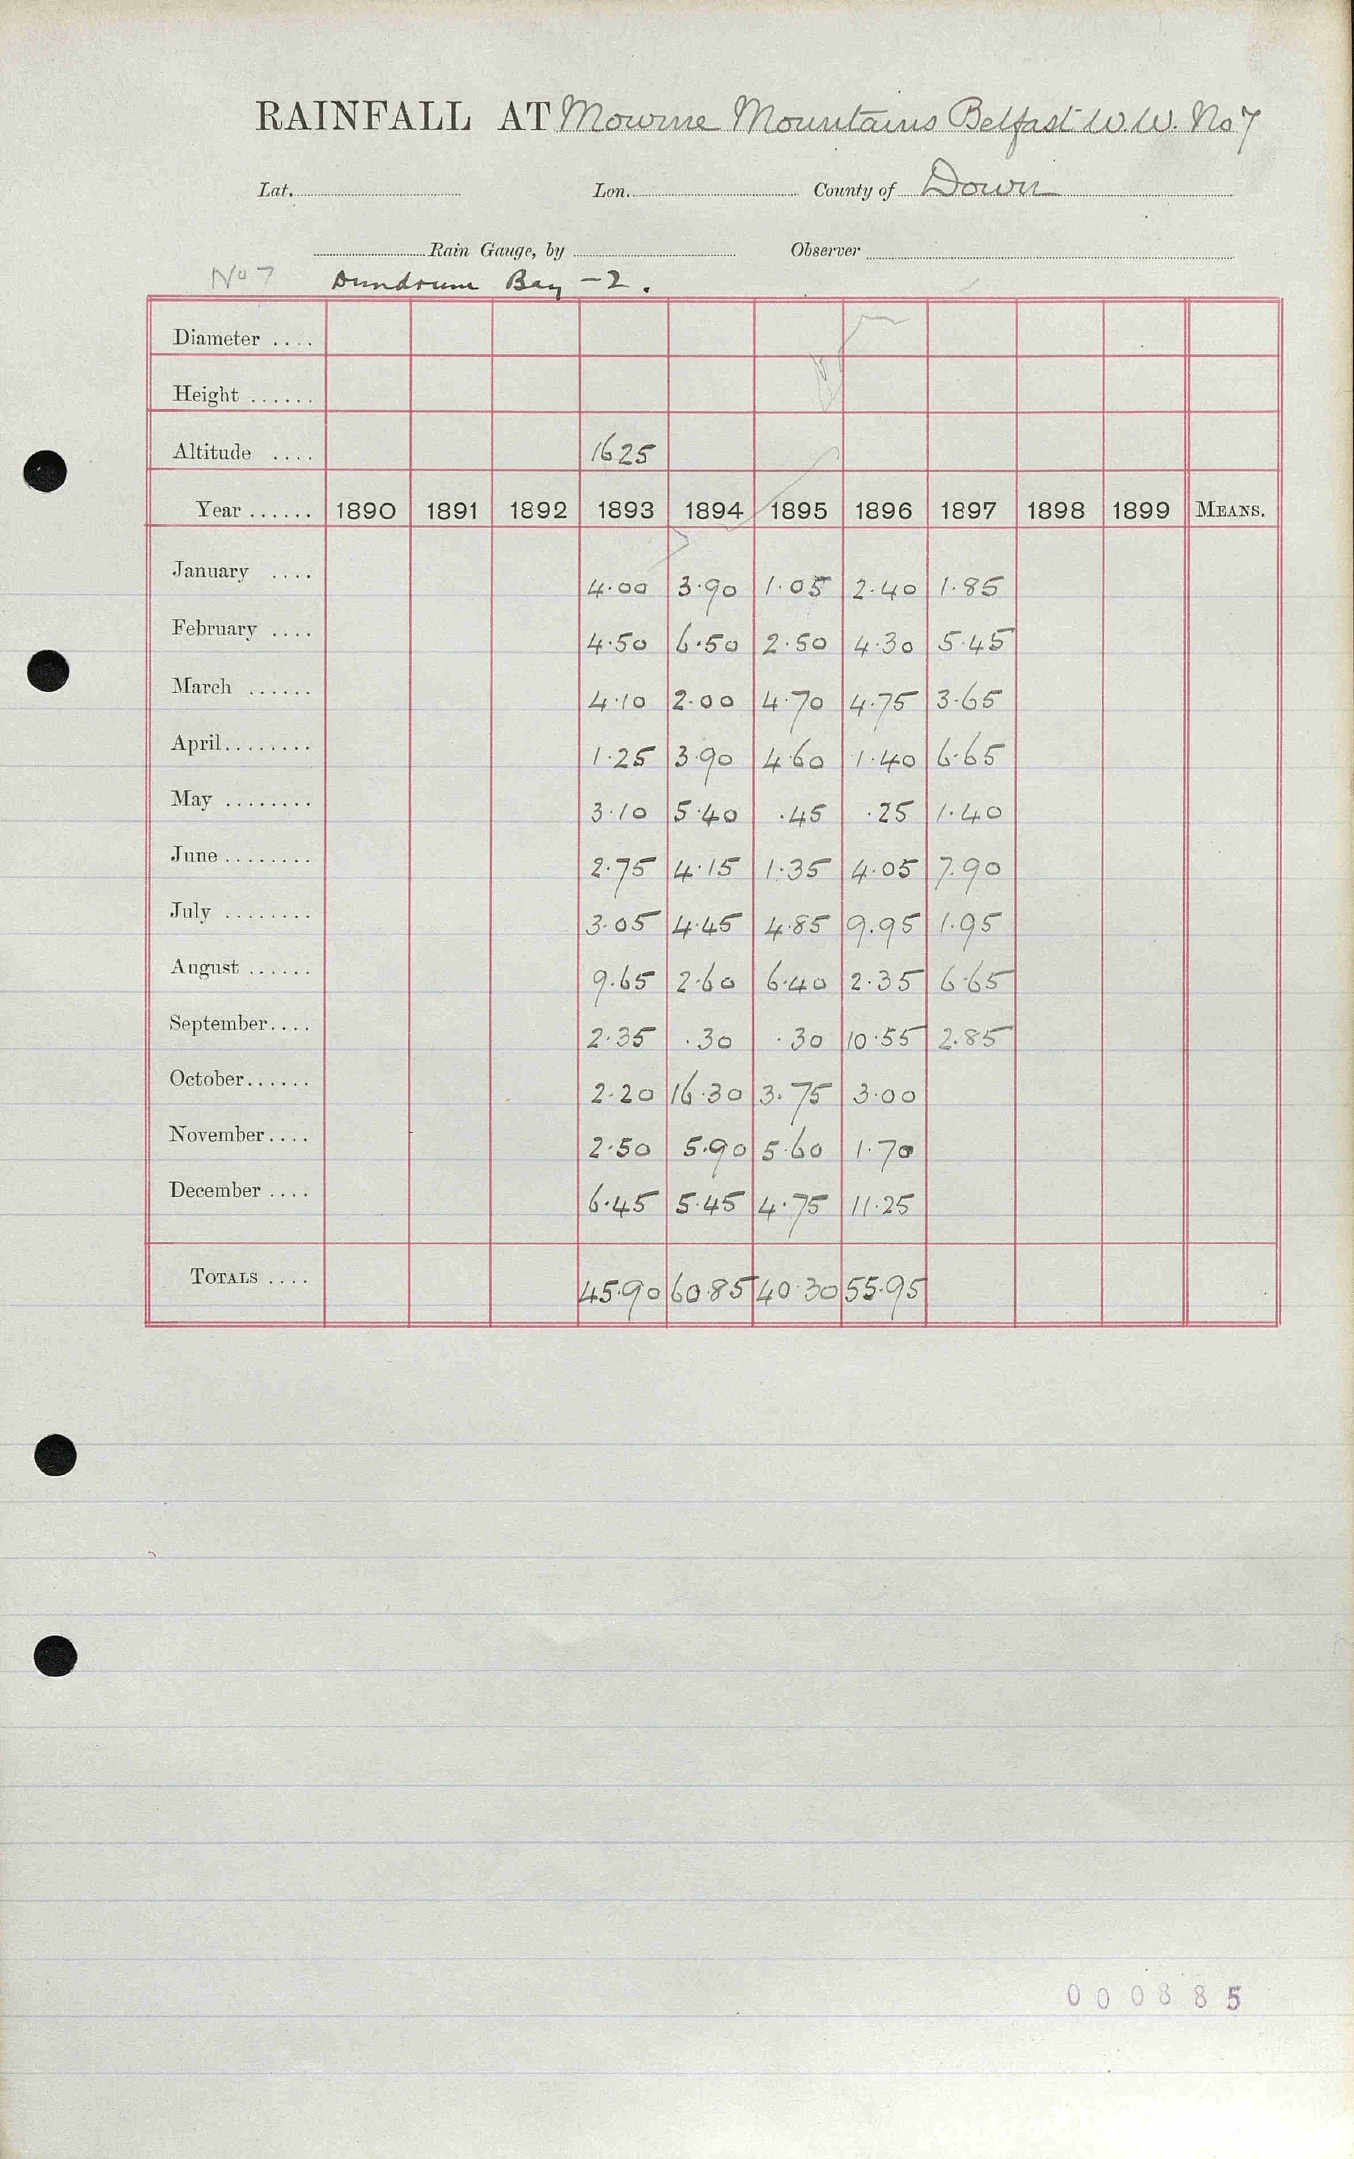 RAINFALL AT Mourne Mountains Belfast W.W. No 7
Lat. Lon. County of Down
Rain Gauge, by Observer
No 7 Dundrum Bay - 2.
Diameter ....
Height ......
Altitude .... 1625
Year ...... 1890 1891 1892 1893 1894 1895 1896 1897 1898 1899 MEANS.
January .... 4.00 3.90 1.05 2.40 1.85
February .... 4.50 6.50 2.50 4.30 5.45
March ...... 4.10 2.00 4.70 4.75 3.65
April........ 1.25 3.90 4.60 1.40 6.65
May ........ 3.10 5.40 .45 .25 1.40
June ........ 2.75 4.15 1.35 4.05 7.90
July ........ 3.05 4.45 4.85 9.95 1.95
August ...... 9.65 2.60 6.40 2.35 6.65
September.... 2.35 .30 .30 10.55 2.85
October...... 2.20 16.30 3.75 3.00
November.... 2.50 5.90 5.60 1.70
December .... 6.45 5.45 4.75 11.25
TOTALS .... 45.90 60.85 40.30 55.95
000885